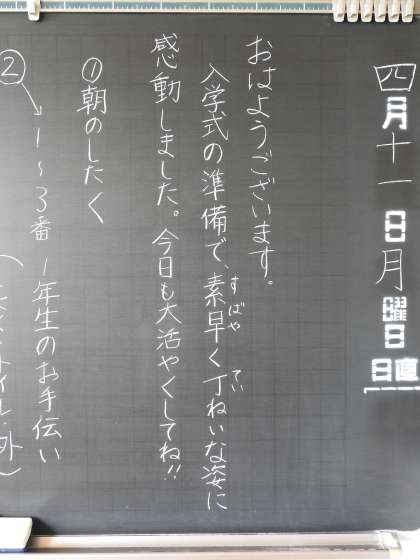 四月十一日月曜日
日直
おはようございます。
入学式の準備で、素早く丁ねいな姿に
すばや
てい
感動しました。今日も大活やくしてね!!
①朝のしたく
②→1~3番 1年生のお手伝い